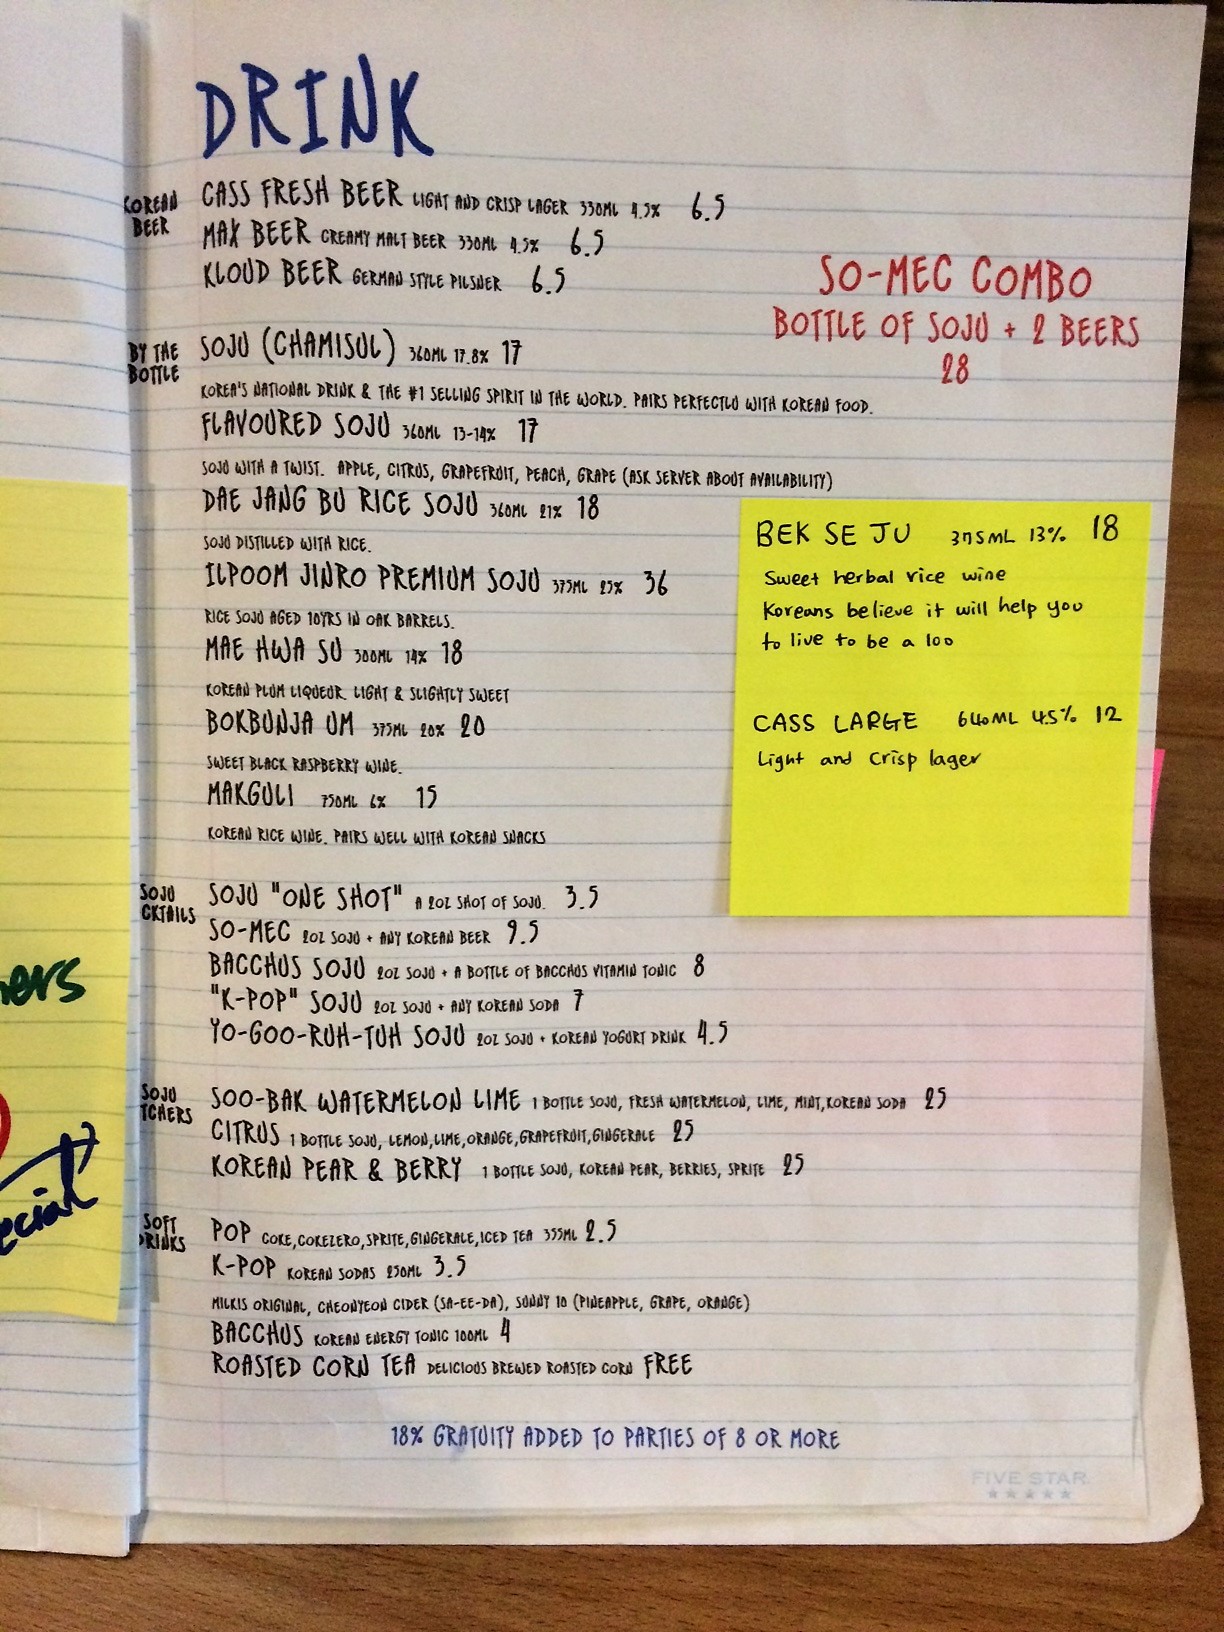 DRINK
KOREAN BEER
CASS FRESH BEER LIGHT AND CRISP LAGER 330ML 4.5% 6.5
MAX BEER CREAMY MALT BEER 330ML 4.5% 6.5
KLOUD BEER GERMAN STYLE PILSNER 6.5
SO-MEC COMBO
BOTTLE OF SOJU + 2 BEERS
28
BY THE BOTTLE
SOJU (CHAMISUL) 360ML 17.8% 17
KOREA'S NATIONAL DRINK & THE #1 SELLING SPIRIT IN THE WORLD. PAIRS PERFECTLU WITH KOREAN FOOD.
FLAVOURED SOJU 360ML 13-14% 17
SOJU WITH A TWIST. APPLE, CITRUS, GRAPEFRUIT, PEACH, GRAPE (ASK SERVER ABOUT AVAILABILITY)
DAE JANG BU RICE SOJU 360ML 21% 18
SOJU DISTILLED WITH RICE.
ILPOOM JINRO PREMIUM SOJU 375ML 25% 36
RICE SOJU AGED 10YRS IN OAK BARRELS.
MAE HWA SU 300ML 14% 18
KOREAN PLUM LIQUEUR. LIGHT & SLIGHTLY SWEET
BOKBUNJA UM 375ML 20% 20
SWEET BLACK RASPBERRY WINE.
MAKGULI 750ML 6% 15
KOREAN RICE WINE. PAIRS WELL WITH KOREAN SNACKS
BEK SE JU 375ML 13% 18
Sweet herbal rice wine
Koreans believe it will help you
to live to be a 100
CASS LARGE 640ML 4.5% 12
Light and Crisp lager
SOJU CKTAILS
SOJU "ONE SHOT" A 2OZ SHOT OF SOJU. 3.5
SO-MEC 2OZ SOJU + ANY KOREAN BEER 9.5
BACCHUS SOJU 2OZ SOJU + A BOTTLE OF BACCHUS VITAMIN TONIC 8
"K-POP" SOJU 2OZ SOJU + ANY KOREAN SODA 7
YO-GOO-RUH-TUH SOJU 2OZ SOJU + KOREAN YOGURT DRINK 4.5
SOJU TCHERS
SOO-BAK WATERMELON LIME 1 BOTTLE SOJU, FRESH WATERMELON, LIME, MINT,KOREAN SODA 25
CITRUS 1 BOTTLE SOJU, LEMON,LIME,ORANGE,GRAPEFRUIT,GINGERALE 25
KOREAN PEAR & BERRY 1 BOTTLE SOJU, KOREAN PEAR, BERRIES, SPRITE 25
SOFT DRINKS
POP COKE,COKEZERO,SPRITE,GINGERALE,ICED TEA 355ML 2.5
K-POP KOREAN SODAS 250ML 3.5
MILKIS ORIGINAL, CHEONYEON CIDER (SA-EE-DA), SUNNY 10 (PINEAPPLE, GRAPE, ORANGE)
BACCHUS KOREAN ENERGY TONIC 100ML 4
ROASTED CORN TEA DELICIOUS BREWED ROASTED CORN FREE
18% GRATUITY ADDED TO PARTIES OF 8 OR MORE
FIVE STAR